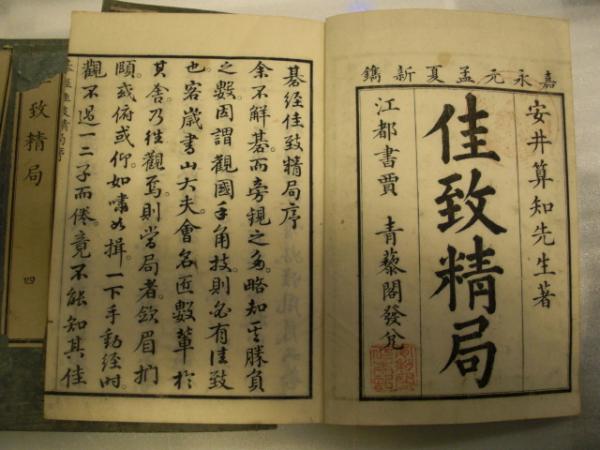 嘉永元孟夏新鐫
安井算知先生著
佳致精局
江都書賈 青藜閣發兌
碁經佳致精局序
余不解碁而旁観之多略知其勝負
之數因謂觀國手角技則必有佳致
也客歳書山大夫會名匠數輩於
其舎乃往觀焉則當局者斂眉捫
頤或俯或仰如嘯如揖一下手動經時
觀不過一二子而倦竟不能知其佳
致精局 四